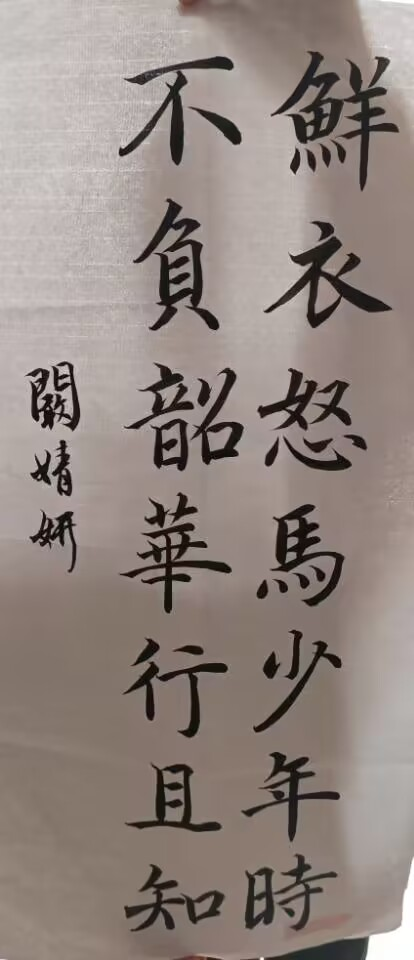 鮮衣怒馬少年時
不負韶華行且知
闞婧妍